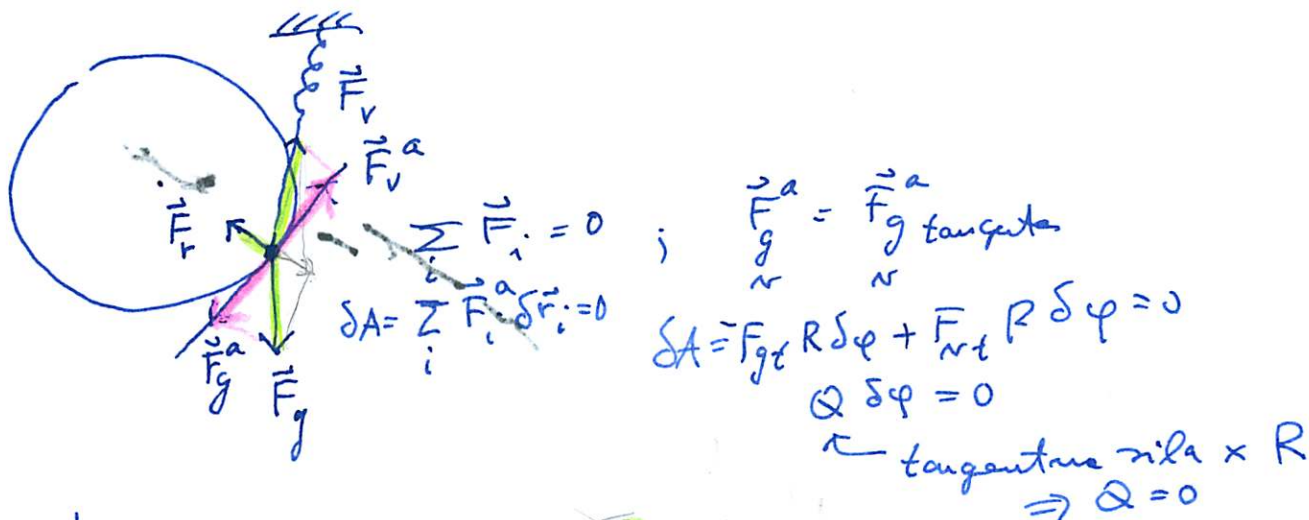 F⃗_v
F⃗_v^a
F⃗_r
∑_i F⃗_i = 0 ; F⃗_g^a = F⃗_g^a tangenta
v v
δA = ∑_i F⃗_i^a δr⃗_i = 0
δA = F_gt R δφ + F_vt R δφ = 0
F⃗_g^a
F⃗_g
Q δφ = 0
↖ tangentna sila × R
⇒ Q = 0